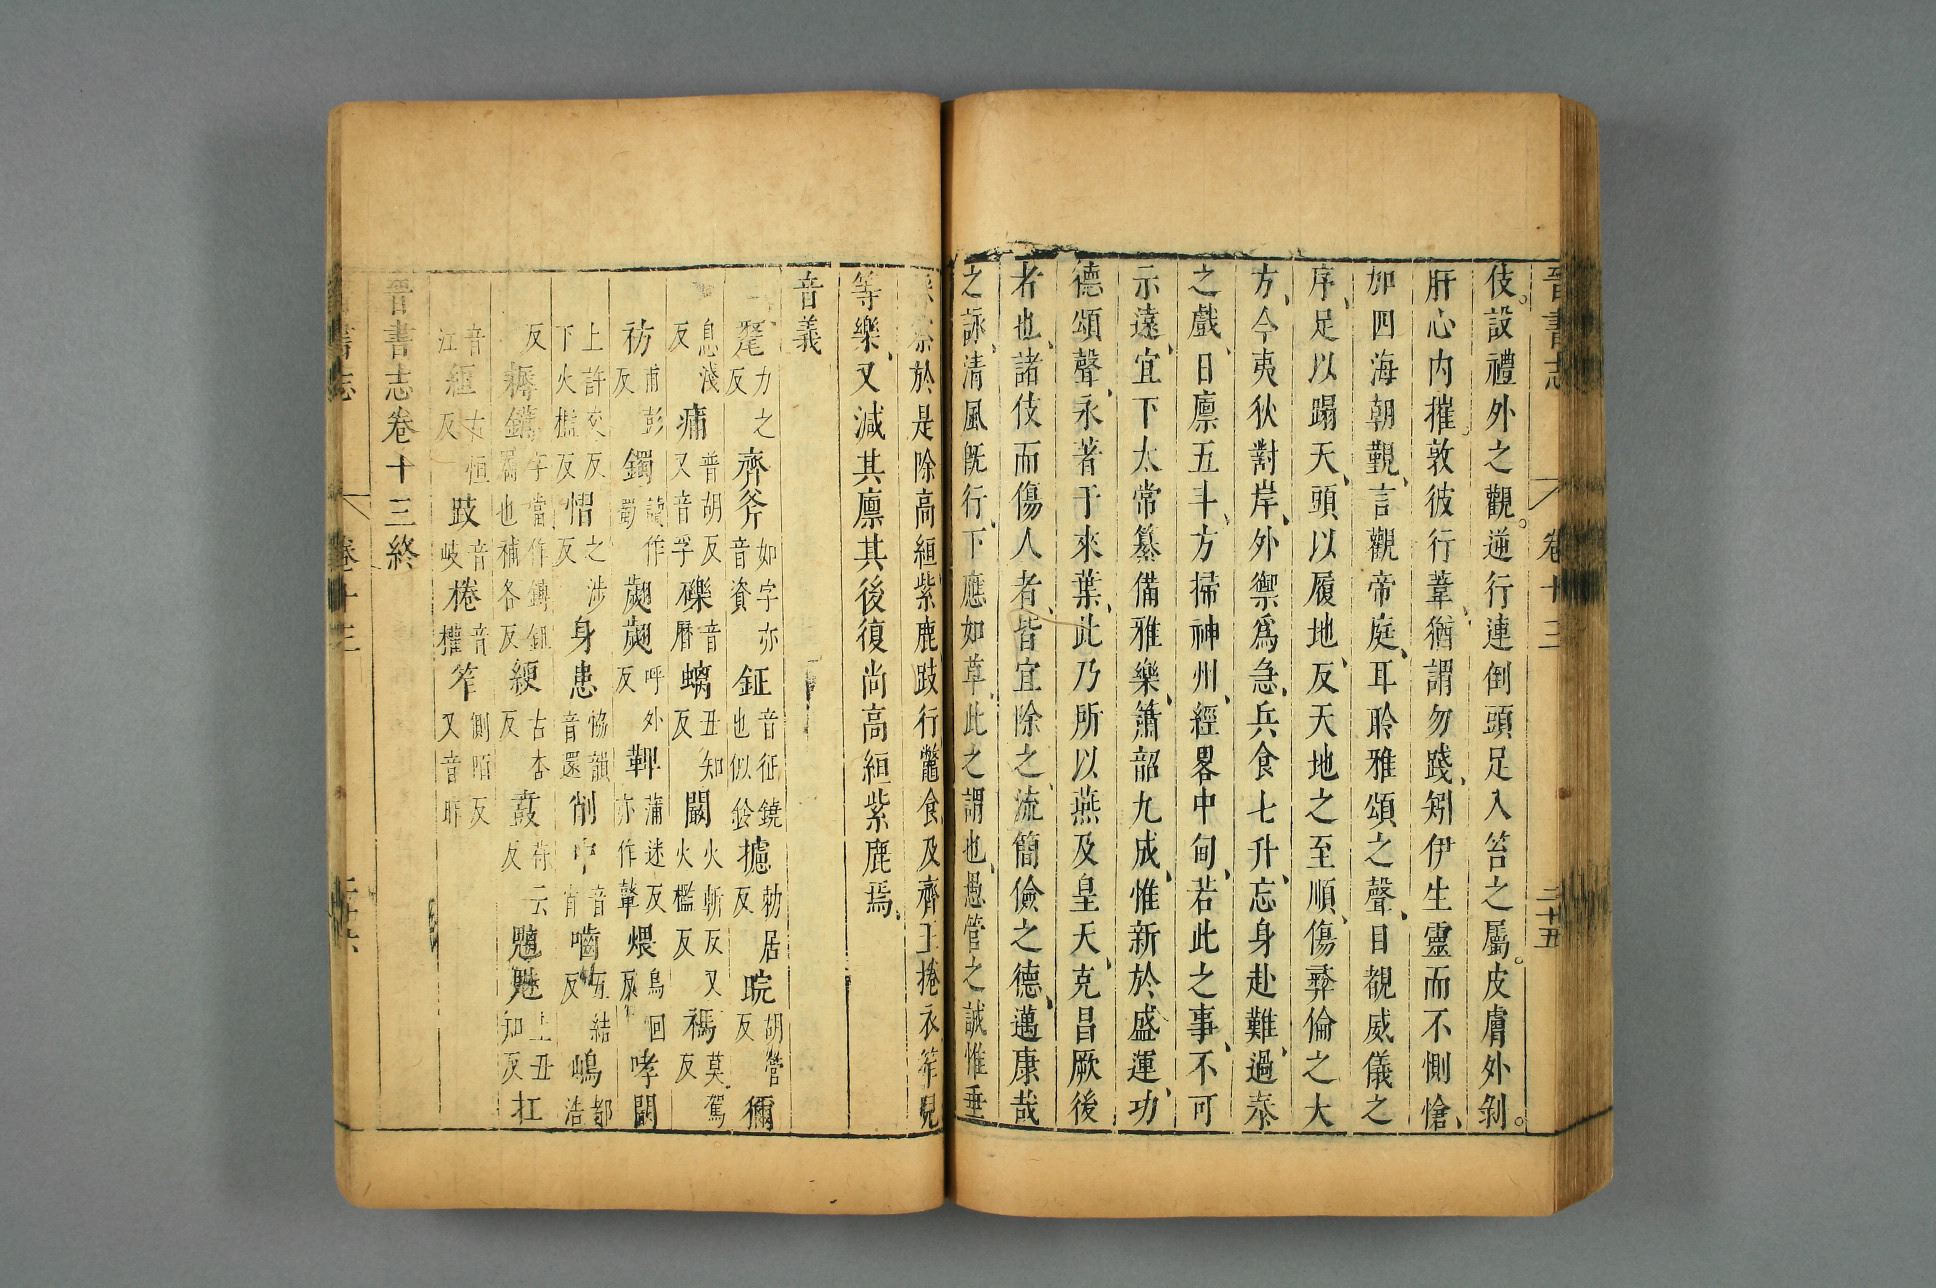 晉書志 卷十三 二十五
伎。設禮外之觀。逆行連倒頭足入筥之屬。皮膚外剝。
肝心内摧。敦彼行葦、猶謂勿踐、矧伊生靈而不惻愴、
加四海朝覲、言觀帝庭、耳聆雅頌之聲、目覩威儀之
序、足以蹋天、頭以履地、反天地之至順、傷彝倫之大
方、今夷狄對岸、外禦爲急、兵食七升、忘身赴難、過泰
之戲、日廪五斗、方掃神州、經畧中甸、若此之事、不可
示遠、宜下太常纂備雅樂、簫韶九成、惟新於盛運、功
德頌聲、永著于來葉、此乃所以燕及皇天、克昌厥後
者也、諸伎而傷人者、皆宜除之、流簡儉之德、邁康哉
之詠、清風旣行、下應如草、此之謂也、愚管之誠惟垂
於是除高絙紫鹿跂行鼈食及齊王捲衣笮兒
等樂、又減其廪其後復尚高絙紫鹿焉、
音義
氂力之反 齊斧如字亦音資 鉦音征鏡也似鈴 攄勅居反 晥胡管反 獮
息淺反 痡普胡反又音孚 礫音曆 螭丑知反 闞火斬反又火檻反 禡莫駕反
祊甫彭反 鐲讀作蜀 翽翽呼外反 鞞蒲迷反亦作鼙 煨烏回反 哮闞
上許交反下火檻反 慴之涉反 身患恊韻音還 削中音宵 嚙五結反 嶋都浩
反 鎛字當作鎛鉏屬也補各反 綆古杏反 鼖苻云反 魑魅上丑知反 扛
音江 絙古恒反 跂音岐 捲音權 笮側陌反又音昨
晉書志卷十三終
書志 卷十三 二十六